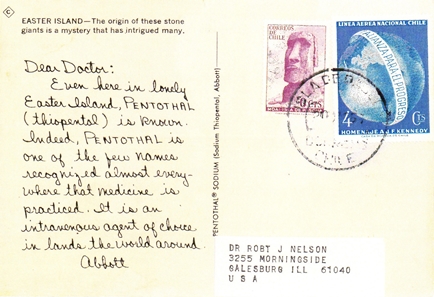 EASTER ISLAND—The origin of these stone
giants is a mystery that has intrigued many.
Dear Doctor:
Even here in lonely
Easter Island, PENTOTHAL
(thiopental) is known.
Indeed, PENTOTHAL is
one of the few names
recognized almost every-
where that medicine is
practiced. It is an
intravenous agent of choice
in lands the world around.
Abbott
PENTOTHAL® SODIUM (Sodium Thiopental, Abbott)
CORREOS
DE CHILE
LINEA AEREA NACIONAL CHILE
ALIANZA PARA EL PROGRESO
4 Cts
HOMENAJE A J.F. KENNEDY
CHILE
DR ROBT J NELSON
3255 MORNINGSIDE
GALESBURG ILL 61040
U S A